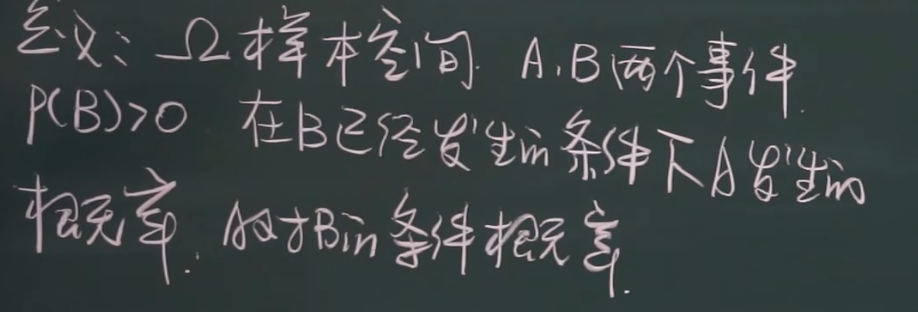 定义: Ω样本空间. A.B两个事件.
P(B)>0 在B已经发生的条件下A发生的
概率. A对B的条件概率.